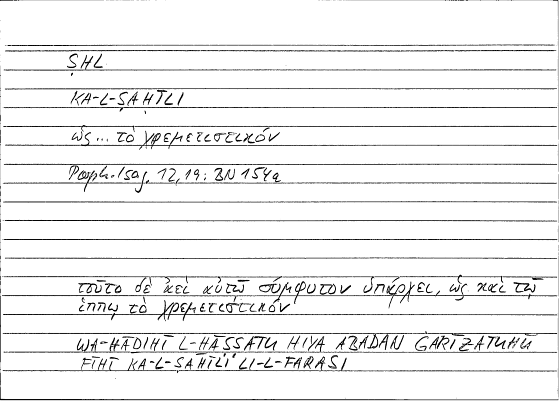 ṢHL
KA-L-ṢAHĪLI
ὡς... τὸ χρεμετιστικόν
Porph. Isag. 12,19: BN 154a
τοῦτο δὲ ἀεὶ αὐτῷ σύμφυτον ὑπάρχει, ὡς καὶ τῷ
ἵππῳ τὸ χρεμετιστικόν
WA-HĀḎIHĪ L-ḪĀṢṢATU HIYA ABADAN ĠARĪZATUHŪ
FĪHI KA-L-ṢAHĪLI LI-L-FARASI